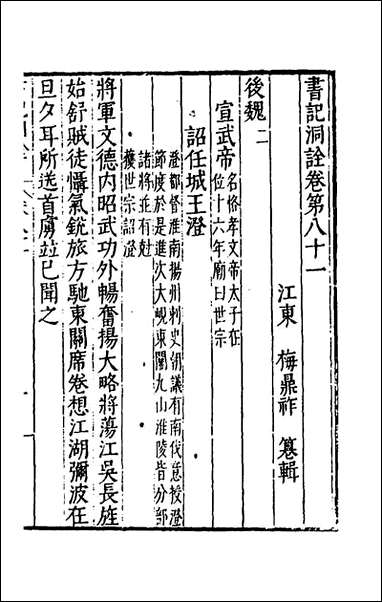 書記洞詮卷第八十一
江東 梅鼎祚 纂輯
後魏二
宣武帝
名恪孝文帝太子在
位十六年廟曰世宗
詔任城王澄
澄都督淮南揚州刺史朝議有南伐意授澄
節度於是進次大峴東關九山淮陵皆分部
諸將並有尅
獲世宗詔澄
將軍文德内昭武功外暢奮揚大略將蕩江吴長旌
始舒賊徒懾氣銳旅方馳東關席卷想江湖彌波在
旦夕耳所送首虜並已聞之